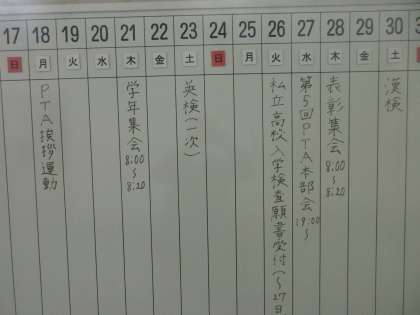 17 18 19 20 21 22 23 24 25 26 27 28 29 30
日 月 火 水 木 金 土 日 月 火 水 木 金 土
PTA挨拶運動
学年集会 8:00～8:20
英検(一次)
私立高校入学検査願書受付(～27日
第5回PTA本部会 19:00～
表彰集会 8:00～8:20
漢検